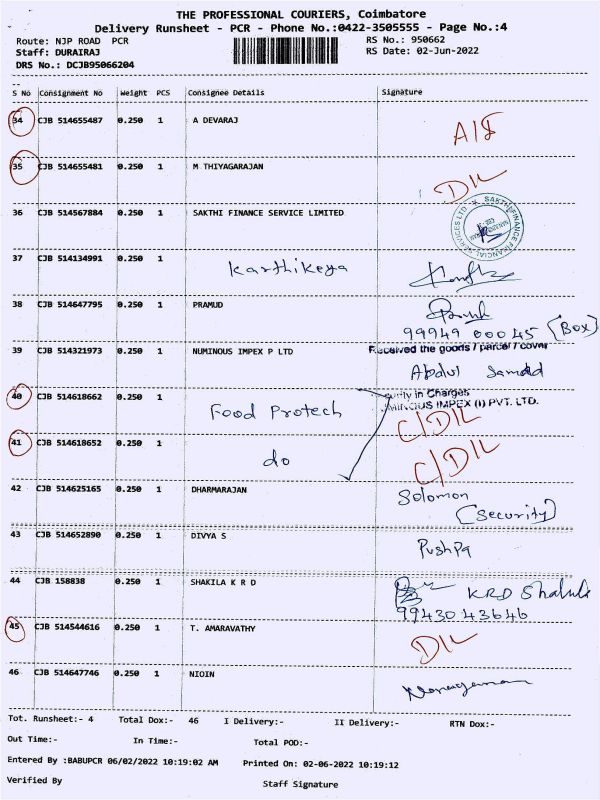 THE PROFESSIONAL COURIERS, Coimbatore
Delivery Runsheet - PCR - Phone No.:0422-3505555 - Page No.:4
Route: NJP ROAD PCR RS No.: 950662
Staff: DURAIRAJ RS Date: 02-Jun-2022
DRS No.: DCJB95066204
S No Consignment No Weight PCS Consignee Details Signature
34 CJB 514655487 0.250 1 A DEVARAJ
35 CJB 514655481 0.250 1 M THIYAGARAJAN
D/L
36 CJB 514567884 0.250 1 SAKTHI FINANCE SERVICE LIMITED
SAKTHIFINANCE FINANCIAL SERVICES LTD
37 CJB 514134991 0.250 1 Karthikeya
38 CJB 514647795 0.250 1 PRAMUD
99949 00045 (Box)
39 CJB 514321973 0.250 1 NUMINOUS IMPEX P LTD Received the goods / parcel / cover
Abdul Samad
40 CJB 514618662 0.250 1 Food Protech
urity in Charges
MINOUS IMPEX (I) PVT. LTD.
C/D/L
41 CJB 514618652 0.250 1 do C/D/L
42 CJB 514625165 0.250 1 DHARMARAJAN Solomon
(Security)
43 CJB 514652890 0.250 1 DIVYA S Pushpa
44 CJB 158838 0.250 1 SHAKILA K R D KRD
99430 43646
45 CJB 514544616 0.250 1 T. AMARAVATHY D/L
46 CJB 514647746 0.250 1 NIOIN
Tot. Runsheet:- 4 Total Dox:- 46 I Delivery:- II Delivery:- RTN Dox:-
Out Time:- In Time:- Total POD:-
Entered By :BABUPCR 06/02/2022 10:19:02 AM Printed On: 02-06-2022 10:19:12
Verified By Staff Signature